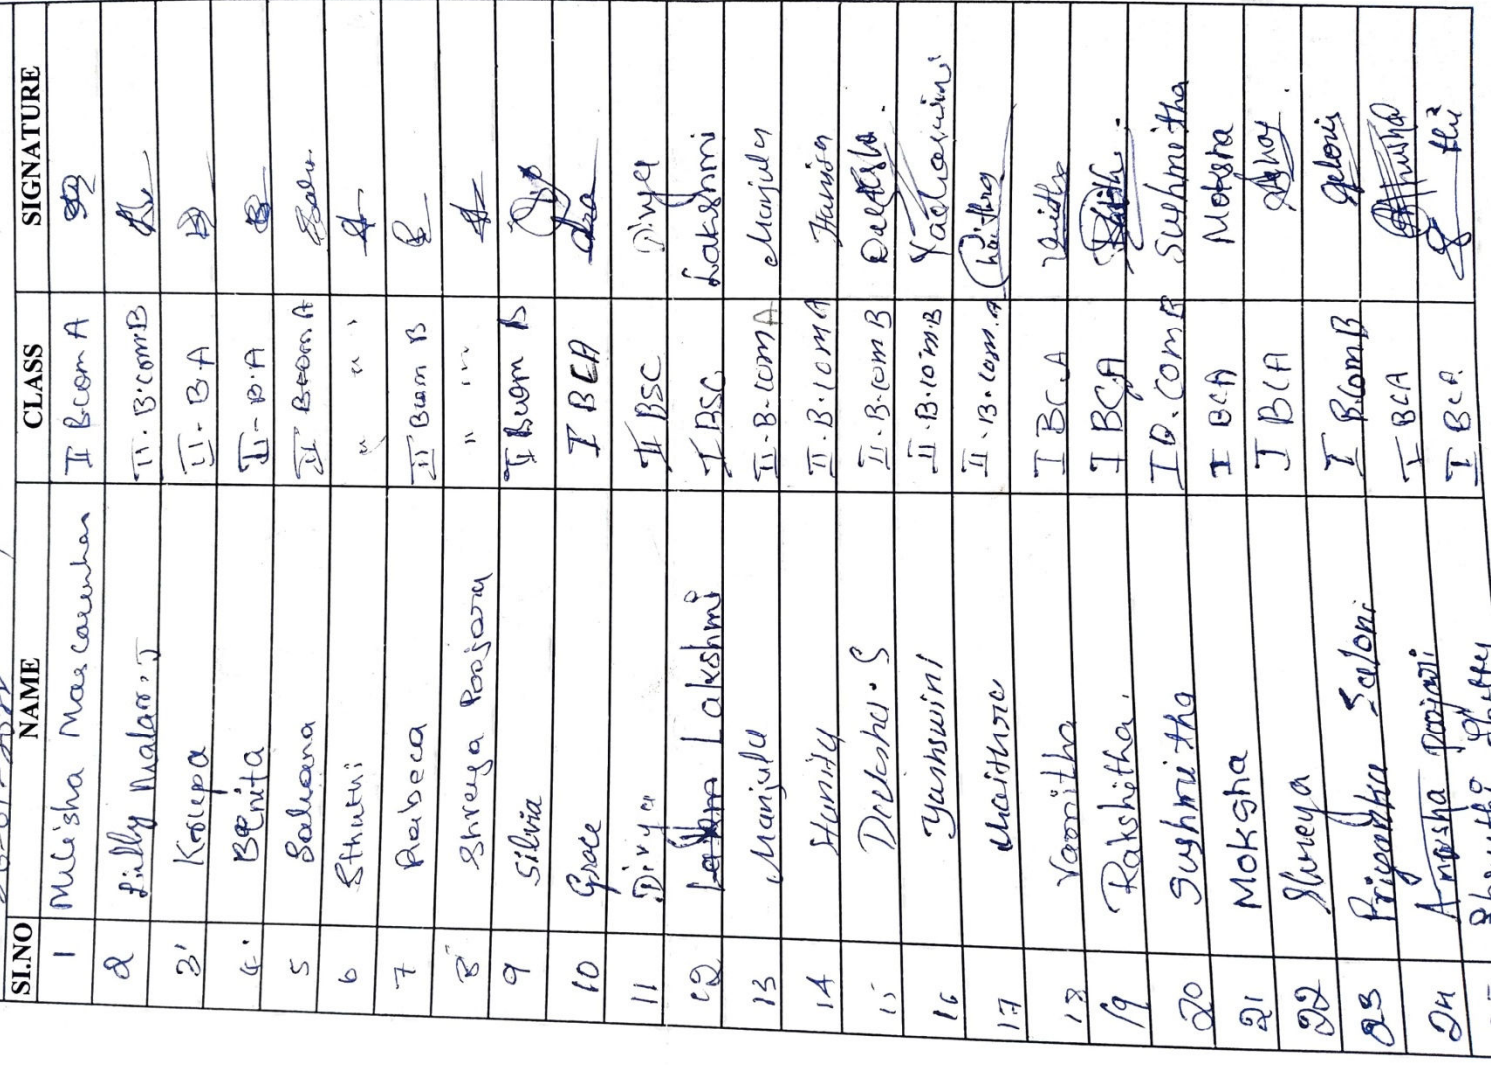 SI.NO NAME CLASS SIGNATURE
1 Melisha Mascarenhas II Bcom A
2 Lilly Malar. J II. B.com.B
3 Krupa II - BA
4. Benita II - B.A
5 Sahana II Bcom A
6 Sthuthi " " "
7 Raibeca II Bcom B
8 Shreya Poojary " "
9 Silvia II Bcom B
10 Grace I BCA
11 Divya II BSC Divya
12 Lakshmi I BSC Lakshmi
13 Manjula II-B.com A Manjula
14 II.B.com A
15 Deeksha.S II.B.com B
16 Yashswini II.B.com.B Yashaswini
17 Chaithra II.B.com.A Chaithra
18 I BC.A
19 Rakshitha. I BCA
20 Sushmitha I B.Com B Sushmitha
21 Moksha I BCA Moksha
22 Shreya I BCA
23 Priyanka Seloni I B.Com B Seloni
24 Anusha Poojari I BCA Anusha
I BCA